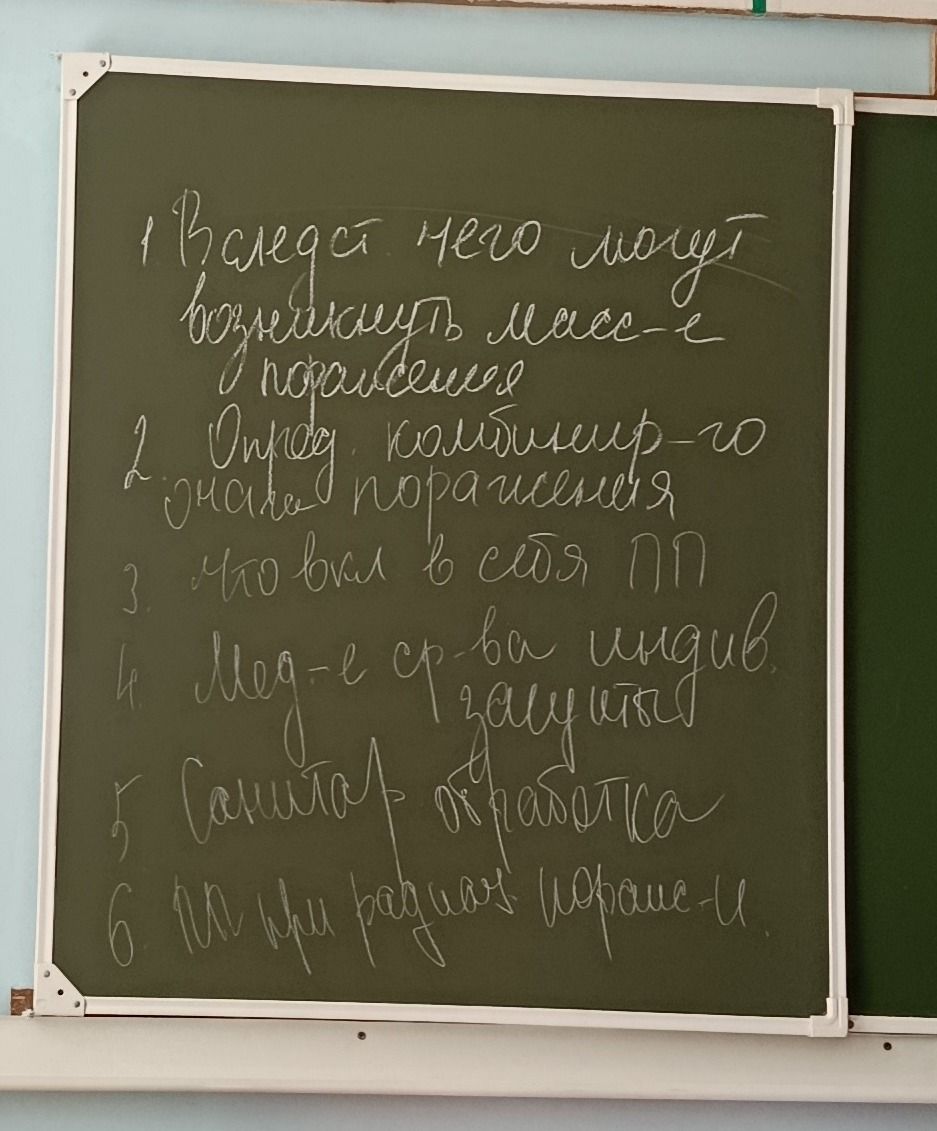 1 Вследст. чего могут
возникнуть масс-е
поражения
2. Опред. комбинир-го
поражения
3. Что вкл в себя ПП
4. Мед-е ср-ва индив.
защиты
5 Санитар обработка
6. ПП при радиац. пораж-и.